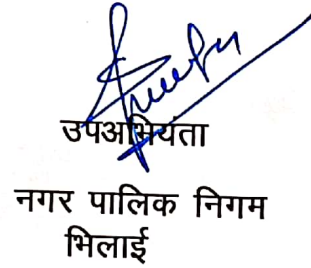 उपअभियंता
नगर पालिक निगम
भिलाई